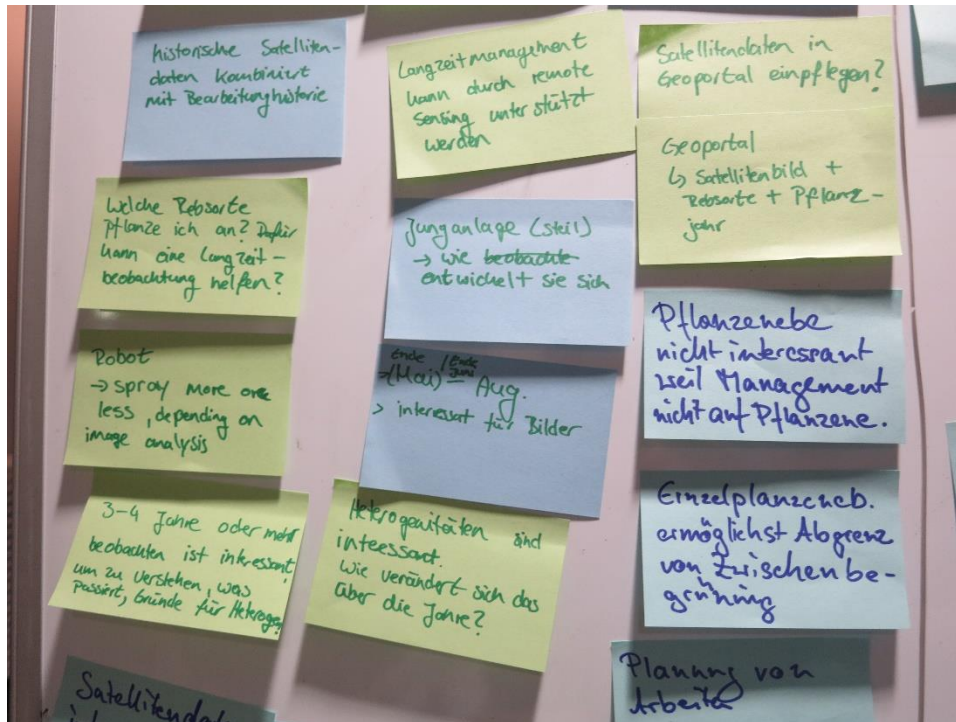 historische Satelliten-
daten kombiniert
mit Bearbeitunghistorie
Welche Rebsorte
pflanze ich an? Dafür
kann eine Langzeit-
beobachtung helfen?
Robot
→ spray more or
less, depending on
image analysis
3-4 Jahre oder mehr
beobachten ist interessant,
um zu verstehen, was
passiert, Gründe für Heterogen.
Satellitendat
Langzeitmanagement
kann durch remote
sensing unterstützt
werden
Junganlage (steil)
→ wie beobachte
entwickelt sie sich
Ende / Ende Juni
→ (Mai) – Aug.
> interessat für Bilder
Heterogenitäten sind
inteessant.
Wie verändert sich das
über die Jahre?
Satellitendaten in
Geoportal einpflegen?
Geoportal
↳ Satellitenbild +
Rebsorte + Pflanz-
jahr
Pflanzenebe
nicht interessant
weil Management
nicht auf Pflanzene.
Einzelplanzeneb.
ermöglichst Abgrenz
von Zwischenbe-
grünung
Planung von
Arbeiten